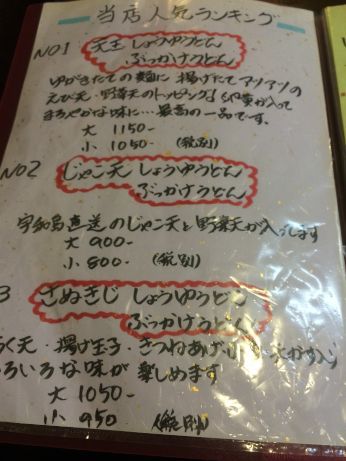 当店人気ランキング
NO1 天玉しょうゆうどん
ぶっかけうどん
ゆがきたての麺に揚げたてアツアツの
えび天・野菜天のトッピング♩卵黄が入って
まろやかな味に…最高の一品です。
大 1150-
小 1050- (税別)
NO2 じゃこ天しょうゆうどん
ぶっかけうどん
宇和島直送のじゃこ天と野菜天が入ってます
大 900-
小 800- (税別)
3 さぬきじしょうゆうどん
ぶっかけうどん
く天・揚げ玉子・きつねあげ
ろいろな味が楽しめます
大 1050-
小 950 (税別)